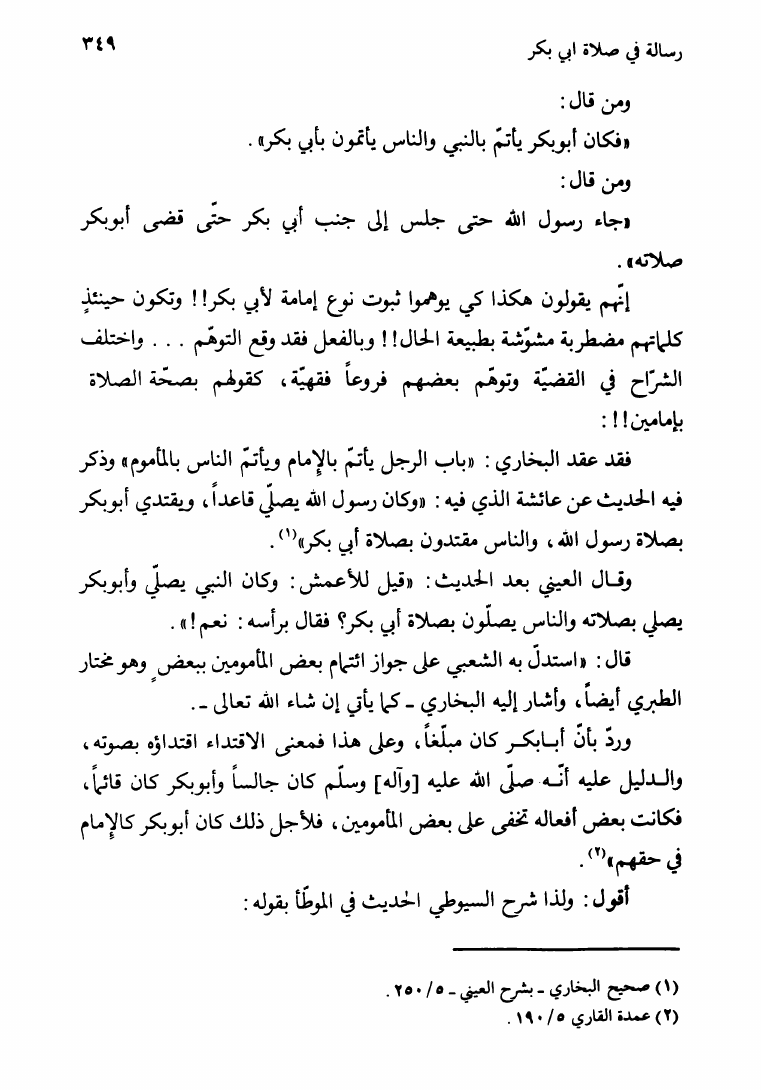 رسالة في صلاة ابي بكر ٣٤٩
ومن قال :
«فكان أبوبكر يأتمّ بالنبي والناس يأتمون بأبي بكر» .
ومن قال :
«جاء رسول الله حتى جلس إلى جنب أبي بكر حتّى قضى أبوبكر
صلاته» .
إنّهم يقولون هكذا كي يوهموا ثبوت نوع إمامة لأبي بكر!! وتكون حينئذٍ
كلماتهم مضطربة مشوّشة بطبيعة الحال!! وبالفعل فقد وقع التوهّم . . . واختلف
الشرّاح في القضيّة وتوهّم بعضهم فروعاً فقهيّة ، كقولهم بصحّة الصلاة
بإمامين!! :
فقد عقد البخاري : «باب الرجل يأتمّ بالإمام ويأتمّ الناس بالمأموم» وذكر
فيه الحديث عن عائشة الذي فيه : «وكان رسول الله يصلّي قاعداً ، ويقتدي أبوبكر
بصلاة رسول الله ، والناس مقتدون بصلاة أبي بكر»(١) .
وقال العيني بعد الحديث : «قيل للأعمش : وكان النبي يصلّي وأبوبكر
يصلي بصلاته والناس يصلّون بصلاة أبي بكر؟ فقال برأسه : نعم!» .
قال : «استدلّ به الشعبي على جواز ائتمام بعض المأمومين ببعض ٍ وهو مختار
الطبري أيضاً ، وأشار إليه البخاري ـ كما يأتي إن شاء الله تعالى ـ .
وردّ بأنّ أبابكر كان مبلّغاً ، وعلى هذا فمعنى الاقتداء اقتداؤه بصوته ،
والدليل عليه أنّه صلّى الله عليه [وآله] وسلّم كان جالساً وأبوبكر كان قائماً ،
فكانت بعض أفعاله تخفى على بعض المأمومين ، فلأجل ذلك كان أبوبكر كالإمام
في حقهم»(٢) .
أقول : ولذا شرح السيوطي الحديث في الموطّأ بقوله :
(١) صحيح البخاري ـ بشرح العيني ـ ٥/ ٢٥٠ .
(٢) عمدة القاري ٥/ ١٩٠ .